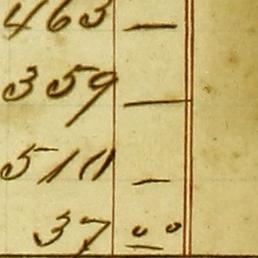 463 —
359 —
511 —
37 00